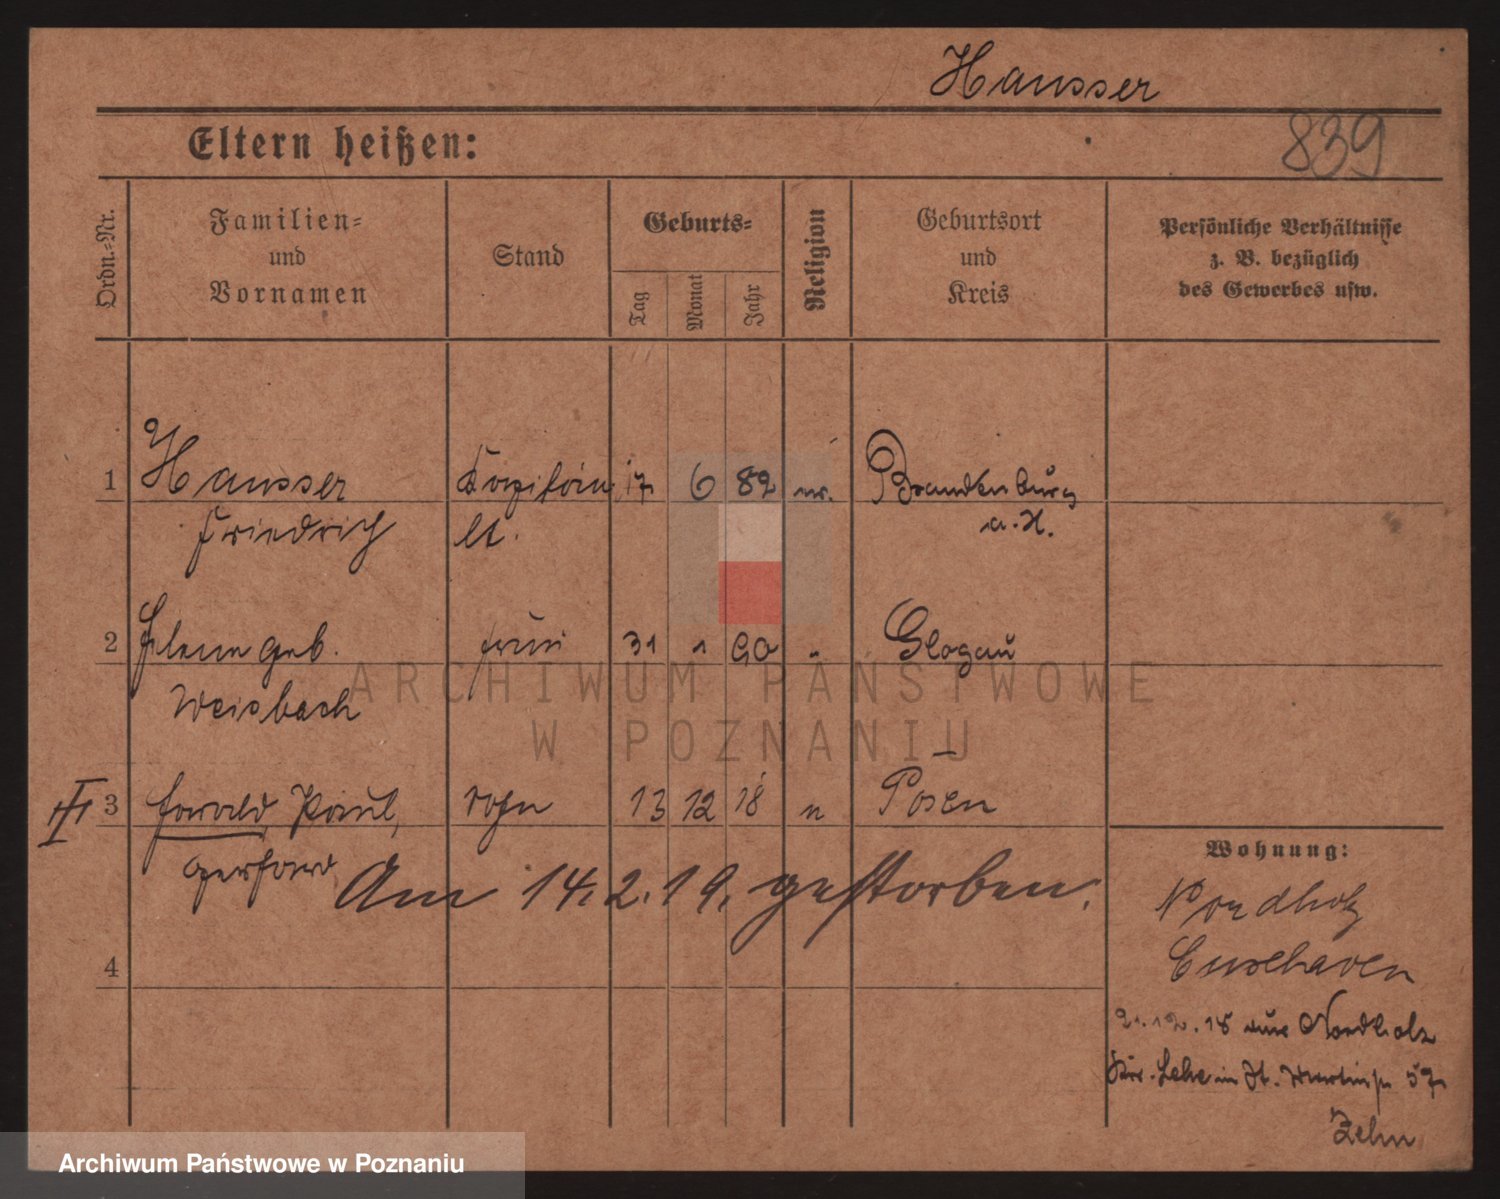 Hausser
839
Eltern heißen:
Ordn.-Nr.
Familien-
und
Vornamen
Stand
Geburts-
Tag
Monat
Jahr
Religion
Geburtsort
und
Kreis
Persönliche Verhältnisse
z. B. bezüglich
des Gewerbes usw.
1 Hausser Kapitän 17 6 82 Brandenburg
Friedrich lt. a. H.
2 geb. Frau 31 1 90 " Glogau
Weisbach
III 3 Paul, Sohn 13 12 18 " Posen
Gerhard
Am 14.2.19. gestorben.
4
Wohnung:
Nordholz
Cuxhaven
21.12.18 aus Nordholz
Kr. Lehe in St. Martinstr 57
Zehn
ARCHIWUM PAŃSTWOWE
W POZNANIU
Archiwum Państwowe w Poznaniu